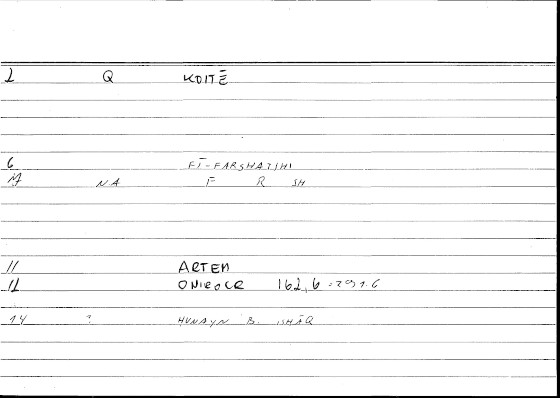 2 Q KOITĒ
6 FĪ-FARSHATIHI
NA F R SH
11 ARTEM
12 ONIROCR 162,6 = 291.6
14 ? HUNAYN B. ISHĀQ